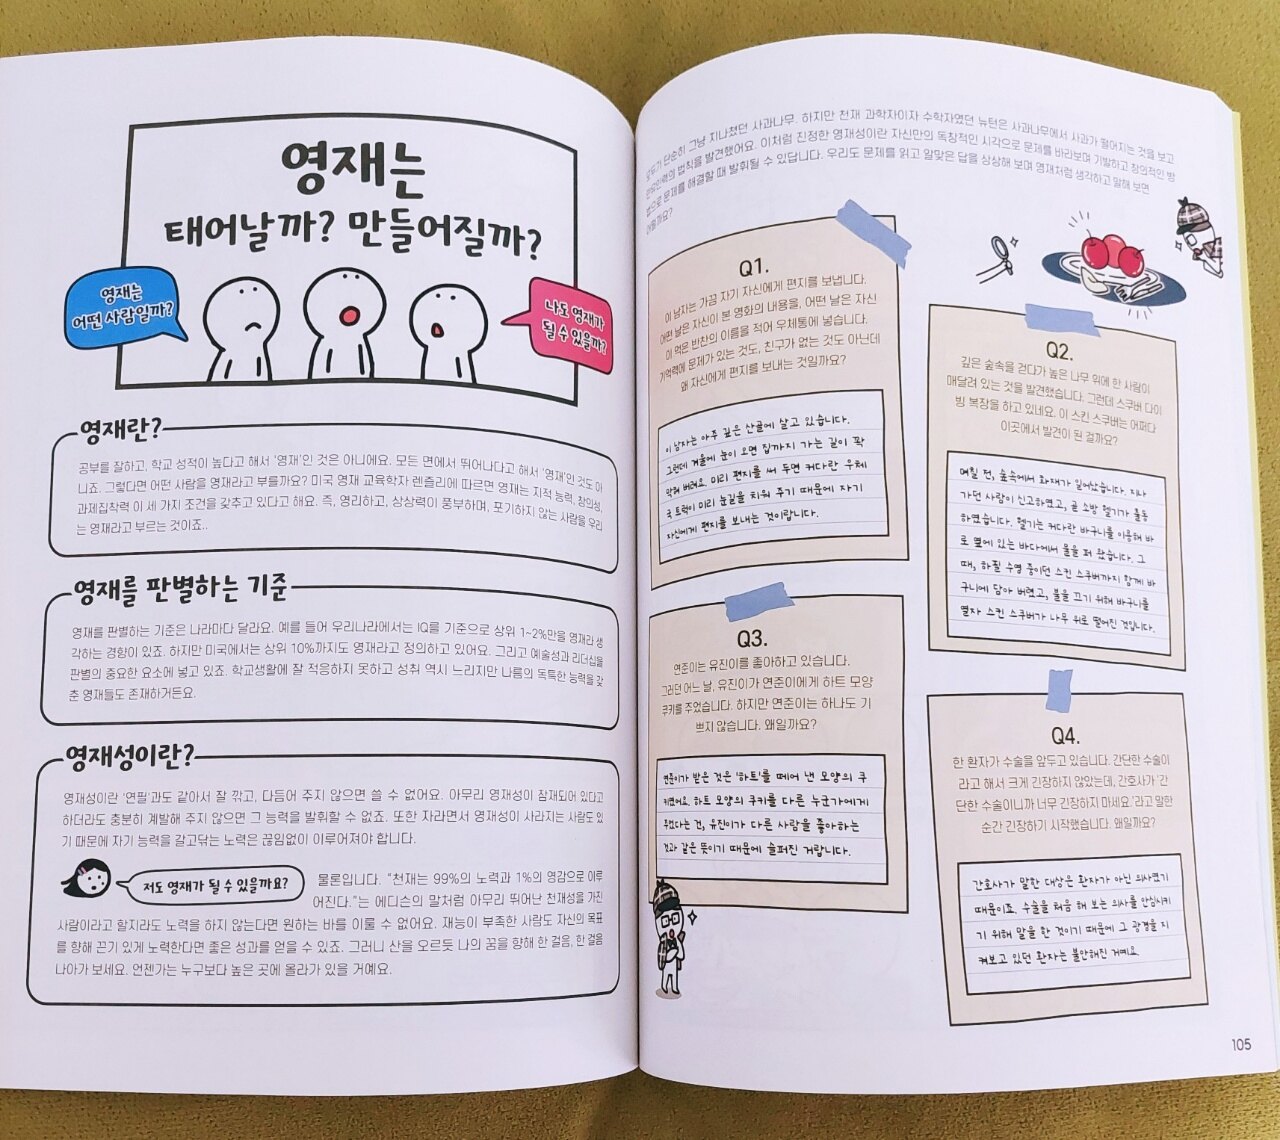 영재는
태어날까? 만들어질까?
영재는
어떤 사람일까?
나도 영재가
될 수 있을까?
영재란?
공부를 잘하고, 학교 성적이 높다고 해서 '영재'인 것은 아니에요. 모든 면에서 뛰어나다고 해서 '영재'인 것도 아
니죠. 그렇다면 어떤 사람을 영재라고 부를까요? 미국 영재 교육학자 렌즐리에 따르면 영재는 지적 능력, 창의성,
과제집착력 이 세 가지 조건을 갖추고 있다고 해요. 즉, 영리하고, 상상력이 풍부하며, 포기하지 않는 사람을 우리
는 영재라고 부르는 것이죠..
영재를 판별하는 기준
영재를 판별하는 기준은 나라마다 달라요. 예를 들어 우리나라에서는 IQ를 기준으로 상위 1~2%만을 영재라 생
각하는 경향이 있죠. 하지만 미국에서는 상위 10%까지도 영재라고 정의하고 있어요. 그리고 예술성과 리더십을
판별의 중요한 요소에 넣고 있죠. 학교생활에 잘 적응하지 못하고 성취 역시 느리지만 나름의 독특한 능력을 갖
춘 영재들도 존재하거든요.
영재성이란?
영재성이란 '연필'과도 같아서 잘 깎고, 다듬어 주지 않으면 쓸 수 없어요. 아무리 영재성이 잠재되어 있다고
하더라도 충분히 계발해 주지 않으면 그 능력을 발휘할 수 없죠. 또한 자라면서 영재성이 사라지는 사람도 있
기 때문에 자기 능력을 갈고닦는 노력은 끊임없이 이루어져야 합니다.
저도 영재가 될 수 있을까요?
물론입니다. "천재는 99%의 노력과 1%의 영감으로 이루
어진다."는 에디슨의 말처럼 아무리 뛰어난 천재성을 가진
사람이라고 할지라도 노력을 하지 않는다면 원하는 바를 이룰 수 없어요. 재능이 부족한 사람도 자신의 목표
를 향해 끈기 있게 노력한다면 좋은 성과를 얻을 수 있죠. 그러니 산을 오르듯 나의 꿈을 향해 한 걸음, 한 걸음
나아가 보세요. 언젠가는 누구보다 높은 곳에 올라가 있을 거예요.
모두가 단순히 그냥 지나쳤던 사과나무. 하지만 천재 과학자이자 수학자였던 뉴턴은 사과나무에서 사과가 떨어지는 것을 보고
만유인력의 법칙을 발견했어요. 이처럼 진정한 영재성이란 자신만의 독창적인 시각으로 문제를 바라보며 기발하고 창의적인 방
법으로 문제를 해결할 때 발휘될 수 있답니다. 우리도 문제를 읽고 알맞은 답을 상상해 보며 영재처럼 생각하고 말해 보면
어떨까요?
Q1.
이 남자는 가끔 자기 자신에게 편지를 보냅니다.
어떤 날은 자신이 본 영화의 내용을, 어떤 날은 자신
이 먹은 반찬의 이름을 적어 우체통에 넣습니다.
기억력에 문제가 있는 것도, 친구가 없는 것도 아닌데
왜 자신에게 편지를 보내는 것일까요?
이 남자는 아주 깊은 산골에 살고 있습니다.
그런데 겨울에 눈이 오면 집까지 가는 길이 꽉
막혀 버려요. 미리 편지를 써 두면 커다란 우체
국 트럭이 미리 눈길을 치워 주기 때문에 자기
자신에게 편지를 보내는 것이랍니다.
Q2.
깊은 숲속을 걷다가 높은 나무 위에 한 사람이
매달려 있는 것을 발견했습니다. 그런데 스쿠버 다이
빙 복장을 하고 있네요. 이 스킨 스쿠버는 어쩌다
이곳에서 발견이 된 걸까요?
며칠 전, 숲속에서 화재가 일어났습니다. 지나
가던 사람이 신고하였고, 곧 소방 헬기가 출동
하였습니다. 헬기는 커다란 바구니를 이용해 바
로 옆에 있는 바다에서 물을 퍼 왔습니다. 그
때, 하필 수영 중이던 스킨 스쿠버까지 함께 바
구니에 담아 버렸고, 불을 끄기 위해 바구니를
열자 스킨 스쿠버가 나무 위로 떨어진 것입니다.
Q3.
연준이는 유진이를 좋아하고 있습니다.
그러던 어느 날, 유진이가 연준이에게 하트 모양
쿠키를 주었습니다. 하지만 연준이는 하나도 기
쁘지 않습니다. 왜일까요?
연준이가 받은 것은 '하트'를 떼어 낸 모양의 쿠
키였어요. 하트 모양의 쿠키를 다른 누군가에게
주었다는 건, 유진이가 다른 사람을 좋아하는
것과 같은 뜻이기 때문에 슬퍼진 거랍니다.
Q4.
한 환자가 수술을 앞두고 있습니다. 간단한 수술이
라고 해서 크게 긴장하지 않았는데, 간호사가 '간
단한 수술이니까 너무 긴장하지 마세요.'라고 말한
순간 긴장하기 시작했습니다. 왜일까요?
간호사가 말한 대상은 환자가 아닌 의사였기
때문이죠. 수술을 처음 해 보는 의사를 안심시키
기 위해 말을 한 것이기 때문에 그 광경을 지
켜보고 있던 환자는 불안해진 거예요.
105